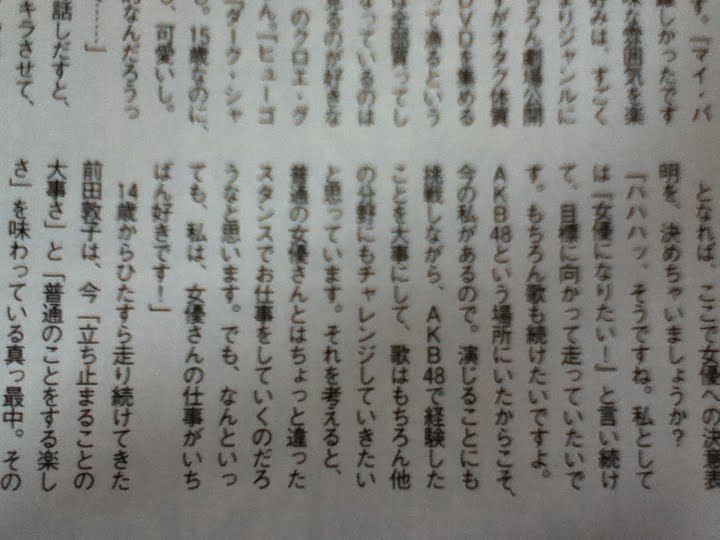 す。『マイ・バ
しかったです
な雰囲気を楽
好みは、すごく
まりジャンルに
ちろん劇場公開
すがオタク体質
DVDを集める
って漁るという
は全部買ってし
なっているのは
るのが好きな
のクロエ・グ
『ヒューゴ
『ダーク・シャ
。15歳なのに、
、可愛いし。
なんだろうっ
……」
話しだすと、
キラさせて、
となれば、ここで女優への決意表
明を、決めちゃいましょうか?
「ハハハッ、そうですね。私として
は『女優になりたい!』と言い続け
て、目標に向かって走っていたいで
す。もちろん歌も続けたいですよ。
AKB48という場所にいたからこそ、
今の私があるので。演じることにも
挑戦しながら、AKB48で経験した
ことを大事にして、歌はもちろん他
の分野にもチャレンジしていきたい
と思っています。それを考えると、
普通の女優さんとはちょっと違った
スタンスでお仕事をしていくのだろ
うなと思います。でも、なんといっ
ても、私は、女優さんの仕事がいち
ばん好きです!」
14歳からひたすら走り続けてきた
前田敦子は、今「立ち止まることの
大事さ」と「普通のことをする楽し
さ」を味わっている真っ最中。その